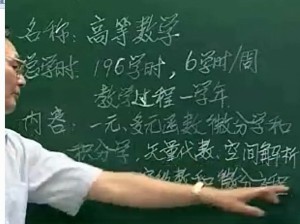 名称：高等数学
总学时：196学时，6学时/周
教学过程一学年
内容：一元、多元函数微分学和
积分学，矢量代数、空间解析
级数和微分方程